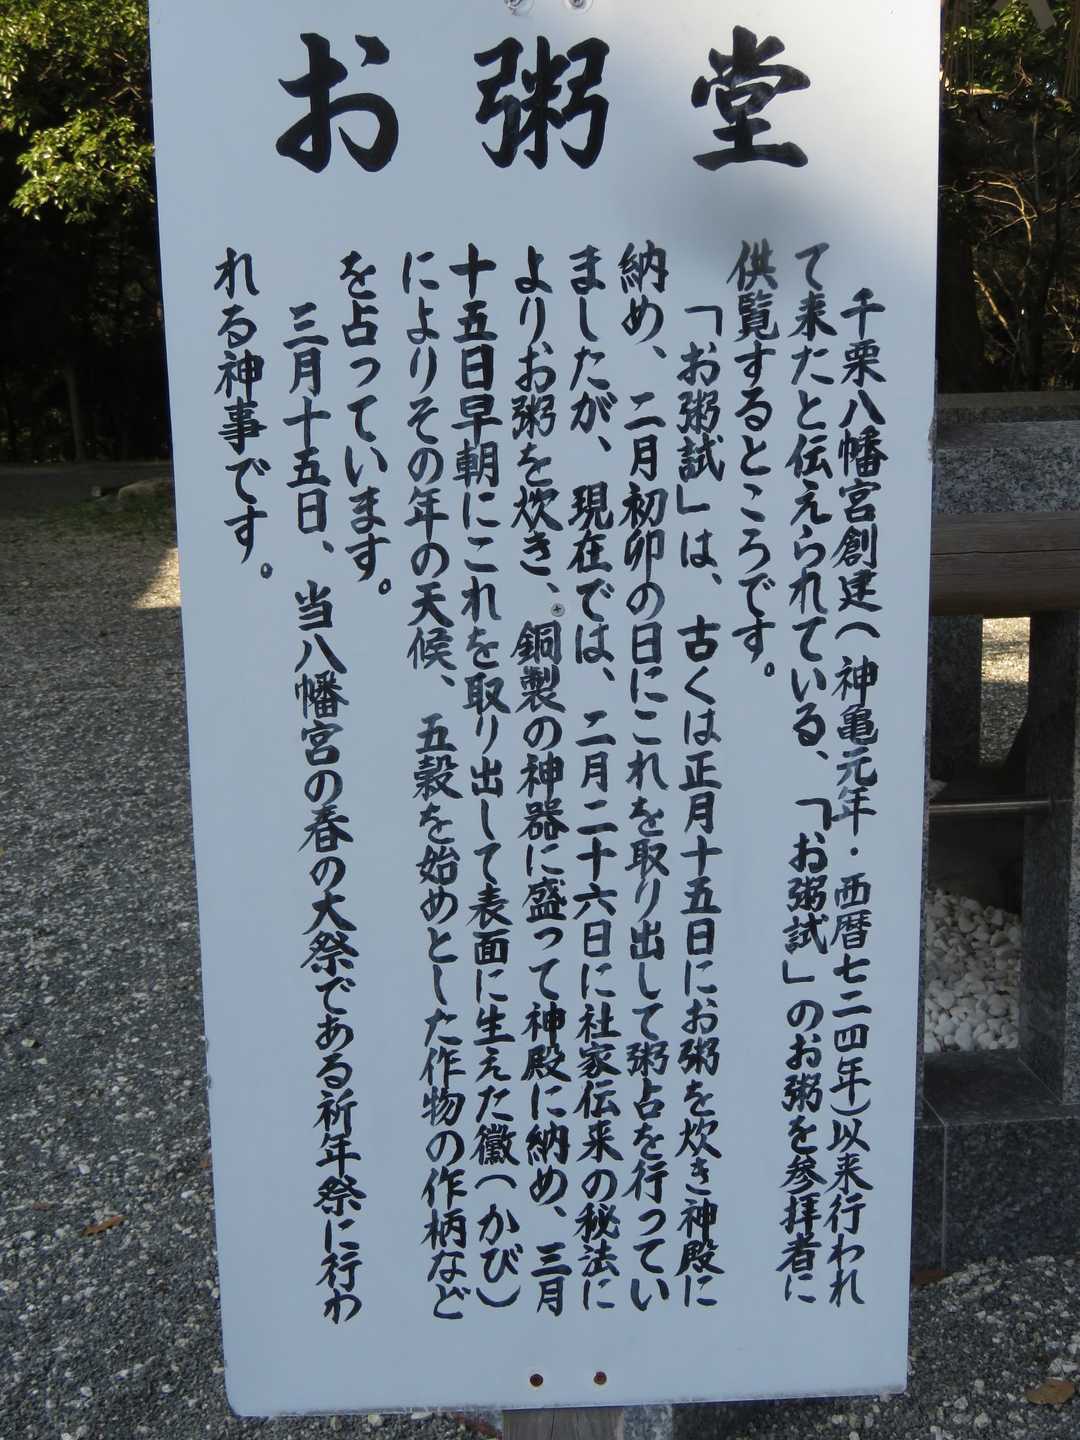 お粥堂
千栗八幡宮創建(神亀元年・西暦七二四年)以来行われ
て来たと伝えられている、「お粥試」のお粥を参拝者に
供覧するところです。
「お粥試」は、古くは正月十五日にお粥を炊き神殿に
納め、二月初卯の日にこれを取り出して粥占を行ってい
ましたが、現在では、二月二十六日に社家伝来の秘法に
よりお粥を炊き、銅製の神器に盛って神殿に納め、三月
十五日早朝にこれを取り出して表面に生えた黴(かび)
によりその年の天候、五穀を始めとした作物の作柄など
を占っています。
三月十五日、当八幡宮の春の大祭である祈年祭に行わ
れる神事です。